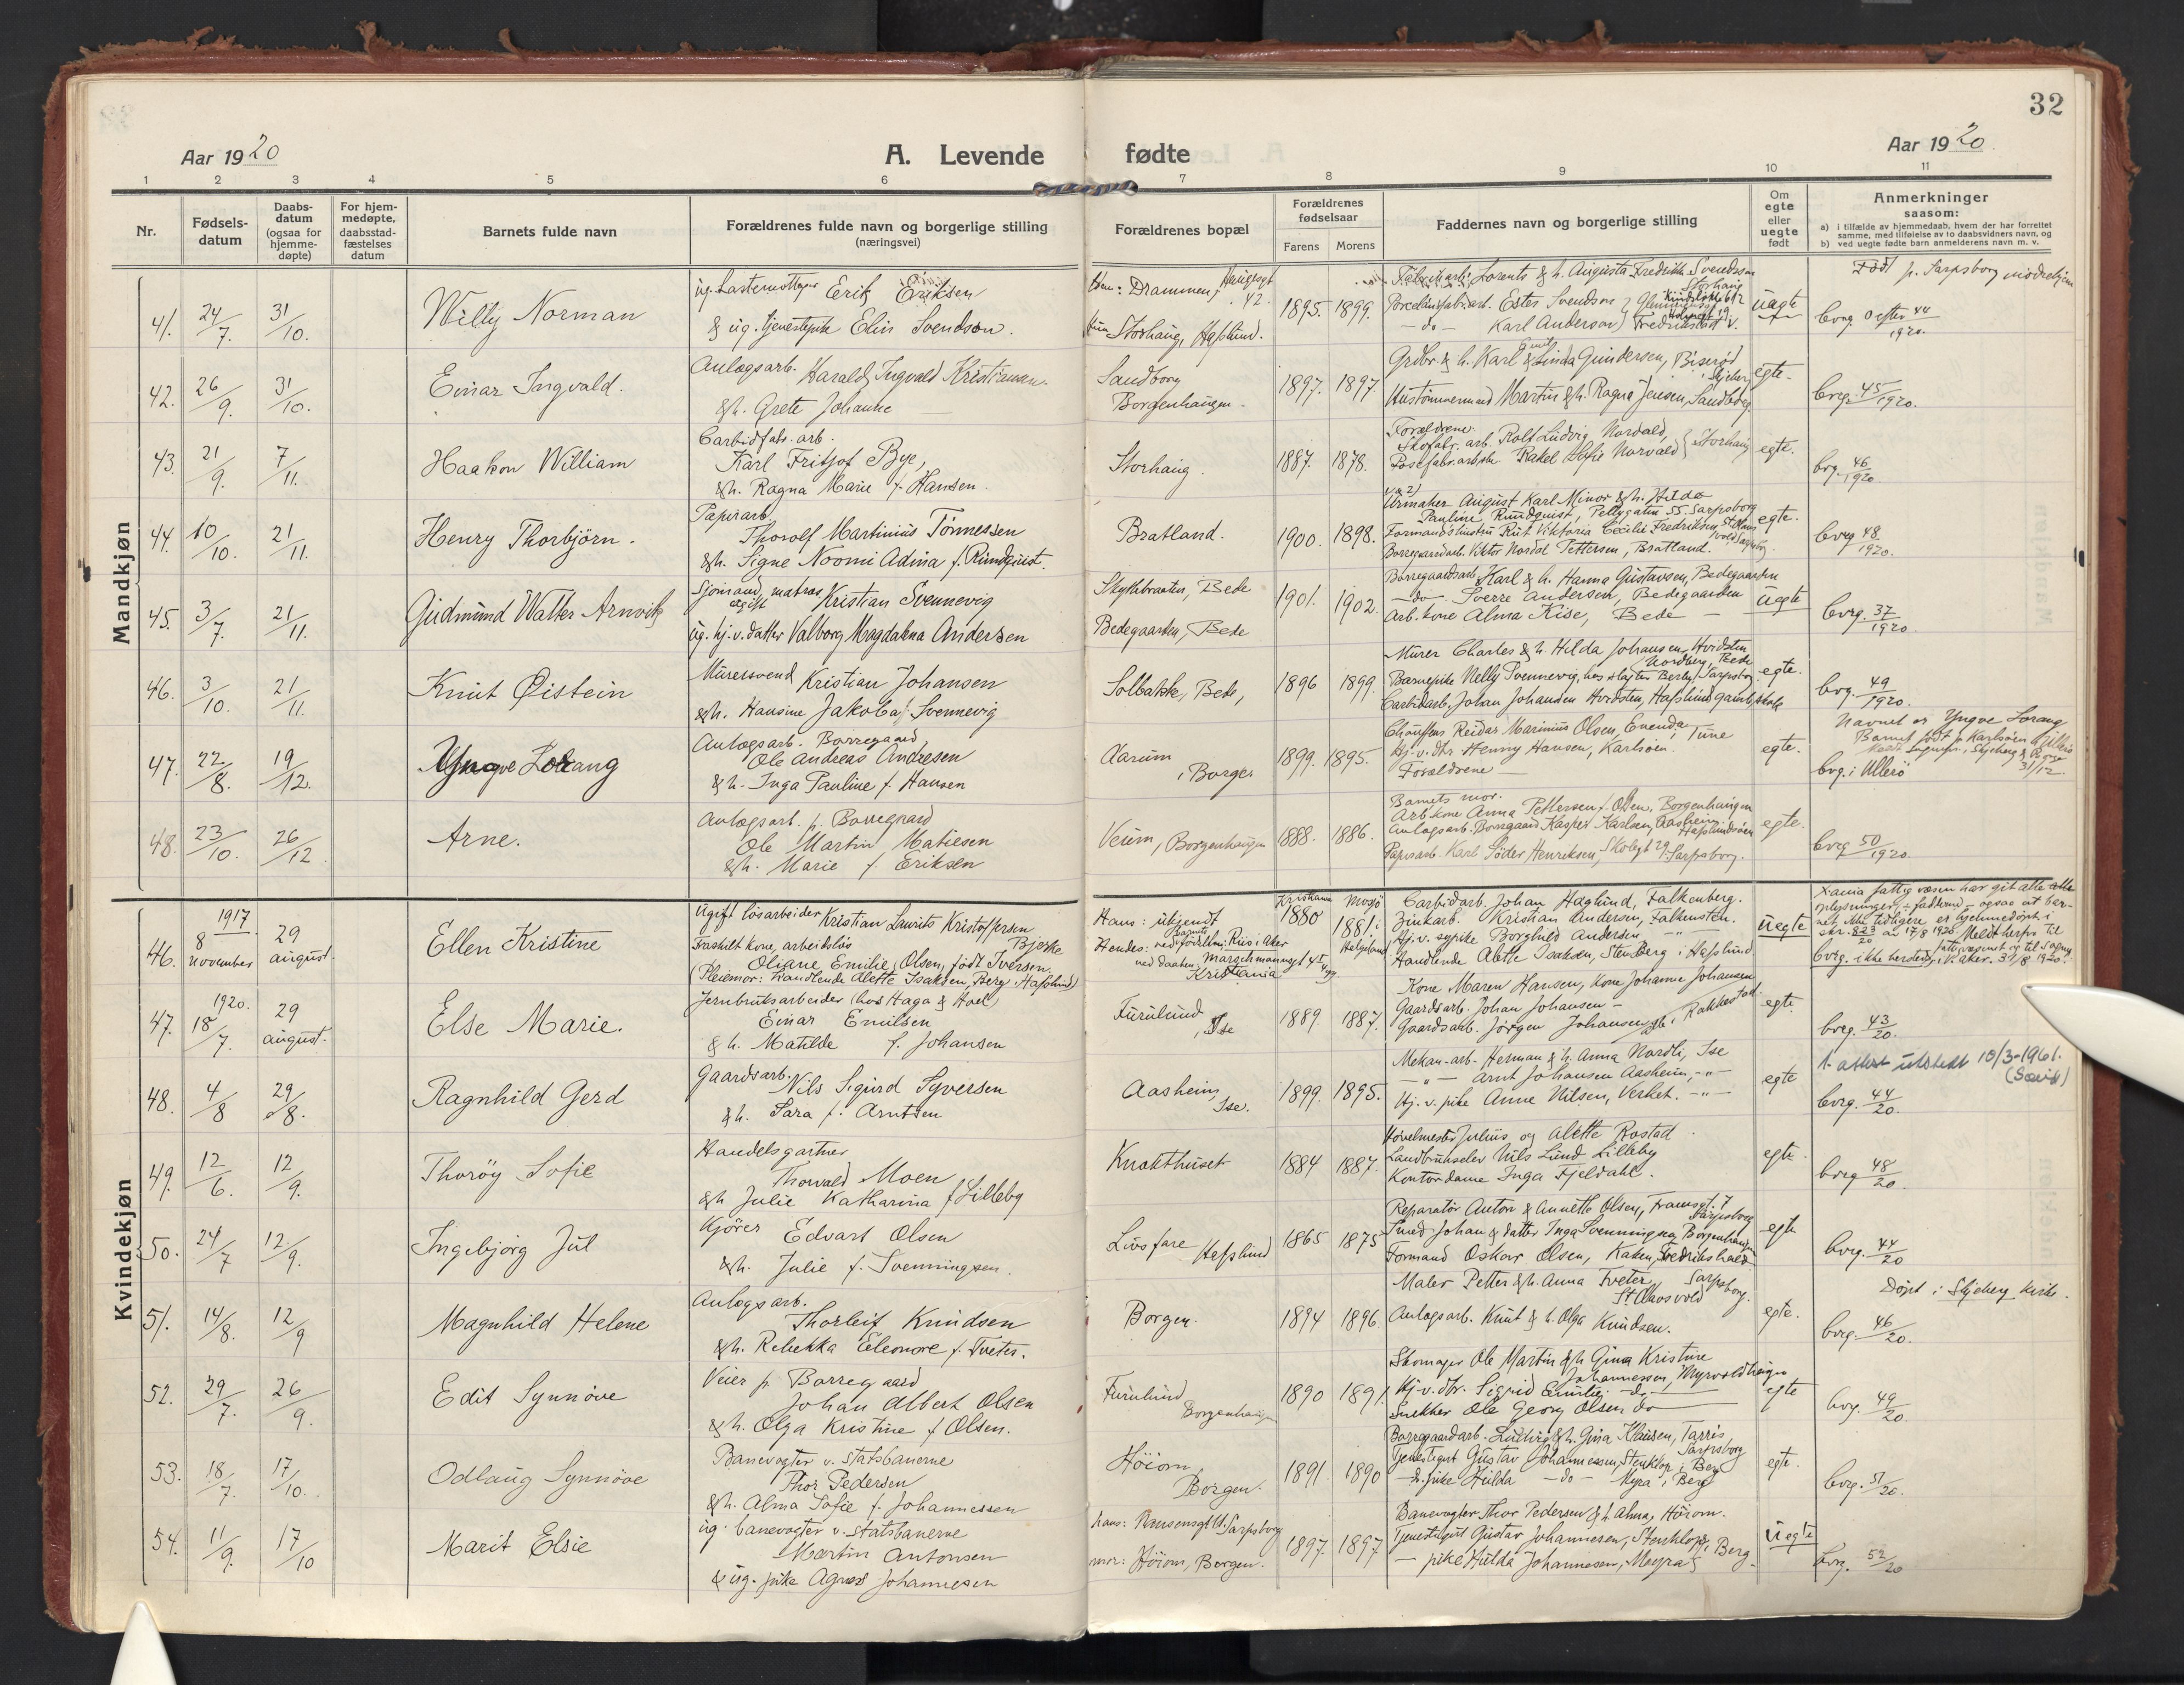 32
Aar 1920
A. Levende fødte
Aar 1920.
1 2 3 4 5 6 7 8 9 10 11
Nr.
Fødsels-datum
Daabs-datum (ogsaa for hjemme-døpte)
For hjem-medøpte, daabsstad-fæstelses datum
Barnets fulde navn
Forældrenes fulde navn og borgerlige stilling (næringsvei)
Forældrenes bopæl
Forældrenes fødselsaar
Farens Morens
Faddernes navn og borgerlige stilling
Om egte eller uegte født
Anmerkninger saasom:
a) i tilfælde av hjemmedaab, hvem der har forrettet samme, med tilføielse av to daabsvidners navn, og
b) ved uegte fødte barn anmelderens navn m. v.
Mandkjøn
41. 24/7. 31/10. Willy Norman
ug. Erik Eriksen
& ug. tjenestepike Elin Svendsen.
Drammen,
Storhaug, Hafslund.
1895. 1899.
Karl Anderson
uegte
Født p. Sarpsborg
1920.
42. 26/9. 31/10. Einar Ingvald.
Anlægsarb. Harald Ingvald Kristiansen
&h. Grete Johanne
Sandborg
Borgenhaugen
1897. 1897
Grdbr. & h. Karl & Linda Gundersen,
Martin &h. Ragna Jensen, Sandborg
egte.
bvrg. 45/1920.
43. 21/9. 7/11. Haakon William
Carbidfabr. arb.
Karl Fritjof Bye,
&h. Ragna Marie f. Hansen.
Storhaug.
1887. 1878.
Forældrene.
Skofabr. arb. Rolf Ludvig Norvald,
Rakel Sofie Norvald } Storhaug
egte.
bvg. 46/1920
44. 10/10. 21/11. Henry Thorbjörn.
Papirarb.
Thorolf Martinius Tønnessen
&h. Signe Noomi Adina f. Rundquist.
Bratland.
1900. 1898.
Urmaker August Karl Minor &h. Hilda
Pauline Rundquist, Pellygaten 55 Sarpsborg
Rut Viktoria Cecilie Fredriksen,
Borregaardsarb. Viktor Nordal Pettersen, Bratland.
egte.
bvrg 48/1920.
45. 3/7. 21/11. Gudmund Walter Arnvik
Sjømand, matros
ugift Kristian Svennevig
ug. hj. v. datter Valborg Magdalena Andersen
Bede
Bedegaarden, Bede
1901. 1902.
Borregaardsarb. Karl & h. Hanna Gustavsen, Bedegaarden
— do — Sverre Andersen, Bedegaarden
Arb. kone Alma Kise, Bede —
uegte
bvrg. 37/1920.
46. 3/10. 21/11. Knut Øistein
Murersvend Kristian Johansen
&h. Hansine Jakoba f. Svennevig
Solbakke, Bede,
1896 1899.
Murer Charles & h. Hilda Johansen, Hvidsten
Nordberg, Bede
Barnepike Nelly Svennevig,
Carbidarb. Johan Johansen Hvidsten, Hafslund
egte.
bvg. 49/1920.
47. 22/8. 19/12. Yngve Lorang
Anlægsarb. Borregaard,
Ole Andreas Andresen
& h. Inga Pauline f. Hansen
Aarum
i Borge.
1899. 1895.
Chauffør Reidar Marinius Olsen, Evenda, i Tune
hj. v. dtr. Henny Hansen, Karlsøen.
Forældrene —
egte.
Navnet er Yngve Lorang
Barnet født p. Karlsøen
bvg. i Ullerø
31/12.
48. 23/10. 26/12 Arne.
Anlægsarb. p. Borregaard
Ole Martin Matiesen
&h. Marie f. Eriksen
Veum, Borgenhaugen
1888. 1886.
Barnets mor.
Arb. kone Anna Pettersen f. Olsen, Borgenhaugen
Anlægsarb. Borregaard Kasper Karlsen,
Papirarb. Karl Søder Henriksen, Skolegt 29 Sarpsborg.
egte.
bvrg 50/1920.
Kvindekjøn
46. 1917 8 november 29 august. Ellen Kristine
Ugift løsarbeider Kristian Laurits Kristoffersen
Bjerke
Fraskilt kone, arbeidsløs
Oliane Emilie Olsen, født Iversen.
(Pleiemor: handlende Alette Isaksen, Berg i Hafslund)
Hans: ukjendt
Kristiania
1880 1881.
Helgeland
Carbidarb. Johan Haglund, Falkenberg.
Zinkarb. Kristian Andersen, Falkensten.
Hj. v. sypike Borghild Andersen —"—
Handlende Alette Isaksen, Stenberg i Hafslund
uegte
X-ania fattigvæsen har git alle
oplysninger,
17/8 1920.
47. 1920. 18/7. 29 august. Else Marie.
Jernbruksarbeider (hos Haga & Hoel)
Einar Emilsen
& h. Matilde f. Johansen
Furulund
, Ise
1889. 1887.
Kone Maren Hansen, Kone Johanne Johansen
Gaardsarb. Johan Johansen —
Gaardsarb. Jørgen Johansen, i Rakkestad.
egte
bvrg. 43/20.
48. 4/8 29/8. Ragnhild Gerd
Gaardsarb. Nils Sigurd Syversen
& h. Sara f. Arntsen
Aasheim,
Ise.
1899. 1895.
Mekan. arb. Herman & h. Anna Nordli, Ise
—"— Arnt Johansen Aasheim, —"—
Hj. v. pike Anne Nilsen, Verket. —"—
egte
1. attest utstedt 10/3-1961.
bvrg. 44/20.
49. 12/6. 12/9. Thoröy Sofie
Handelsgartner
Thorvald Moen
&h Julie Katharina f Lilleby
Knatthuset
1884 1887.
Høvelmester Julius og Alette Rostad
Landbrukselev Nils Lund Lilleby
Kontordame Inga Fjeldahl.
egte.
bvrg 48/20.
50. 24/7 12/9. Ingebjørg Jul
Kjører Edvart Olsen
&h. Julie f. Svenningsen.
Livsfare Hafslund
1865 1875
Reparatør Anton & Annette Olsen, Framsgt. 7
Sarpsborg
Smed Johan & datter Inga Svenningsen, Borgenhaugen
Formand Oskar Olsen, Fredrikshald
egte
bvrg. 44/20
51. 14/8. 12/9 Magnhild Helene
Anlægsarb.
Thorleif Knudsen
&h. Rebekka Eleonore f. Tveter.
Borgen.
1894 1896.
Maler Petter &h. Anna Tveter, Sarpsborg.
St. Olavsvold
Anlægsarb. Knut & h. Olga Knudsen.
egte.
Døpt i Skjeberg kirke.
bvrg. 46/20.
52. 29/7. 26/9. Edit Synnöve
Veier p. Borregaard
Johan Albert Olsen
& h. Olga Kristine f Olsen.
Furulund
Borgenhaugen
1890 1891.
Skomager Ole Martin &h Gina Kristine
Johannessen, Myrvoldhaugen
Hj. v. dtr. Sigrid Emilie — do —
Snekker Ole Georg Olsen do
egte
bvrg. 49/20.
53. 18/7. 17/10. Odlaug Synnöve
Banevogter v. statsbanerne
Thor Pedersen
&h. Alma Sofie f. Johannessen
Höiom,
Borgen.
1891. 1890
Borregaardarb. Ludvig &h. Gina Klausen, Tarris
Sarpsborg
Tjenestegut Gustav Johannessen, Stenklop, i Berg
— pike Hulda — do — Myra i Berg
egte.
bvrg. 51/20.
54. 11/9. 17/10 Marit Elsie
ug. banevogter v. statsbanerne
Martin Antonsen
& ug. pike Agnes Johannesen
hans: Sarpsborg
mor: Höiom, Borgen.
1897. 1897
Banevogter Thor Pedersen & h. Alma, Höiom.
Tjenestegut Gustav Johannesen, Stenklop, Berg
— pike Hulda Johannesen, Myra } Berg.
uegte
bvg. 52/20